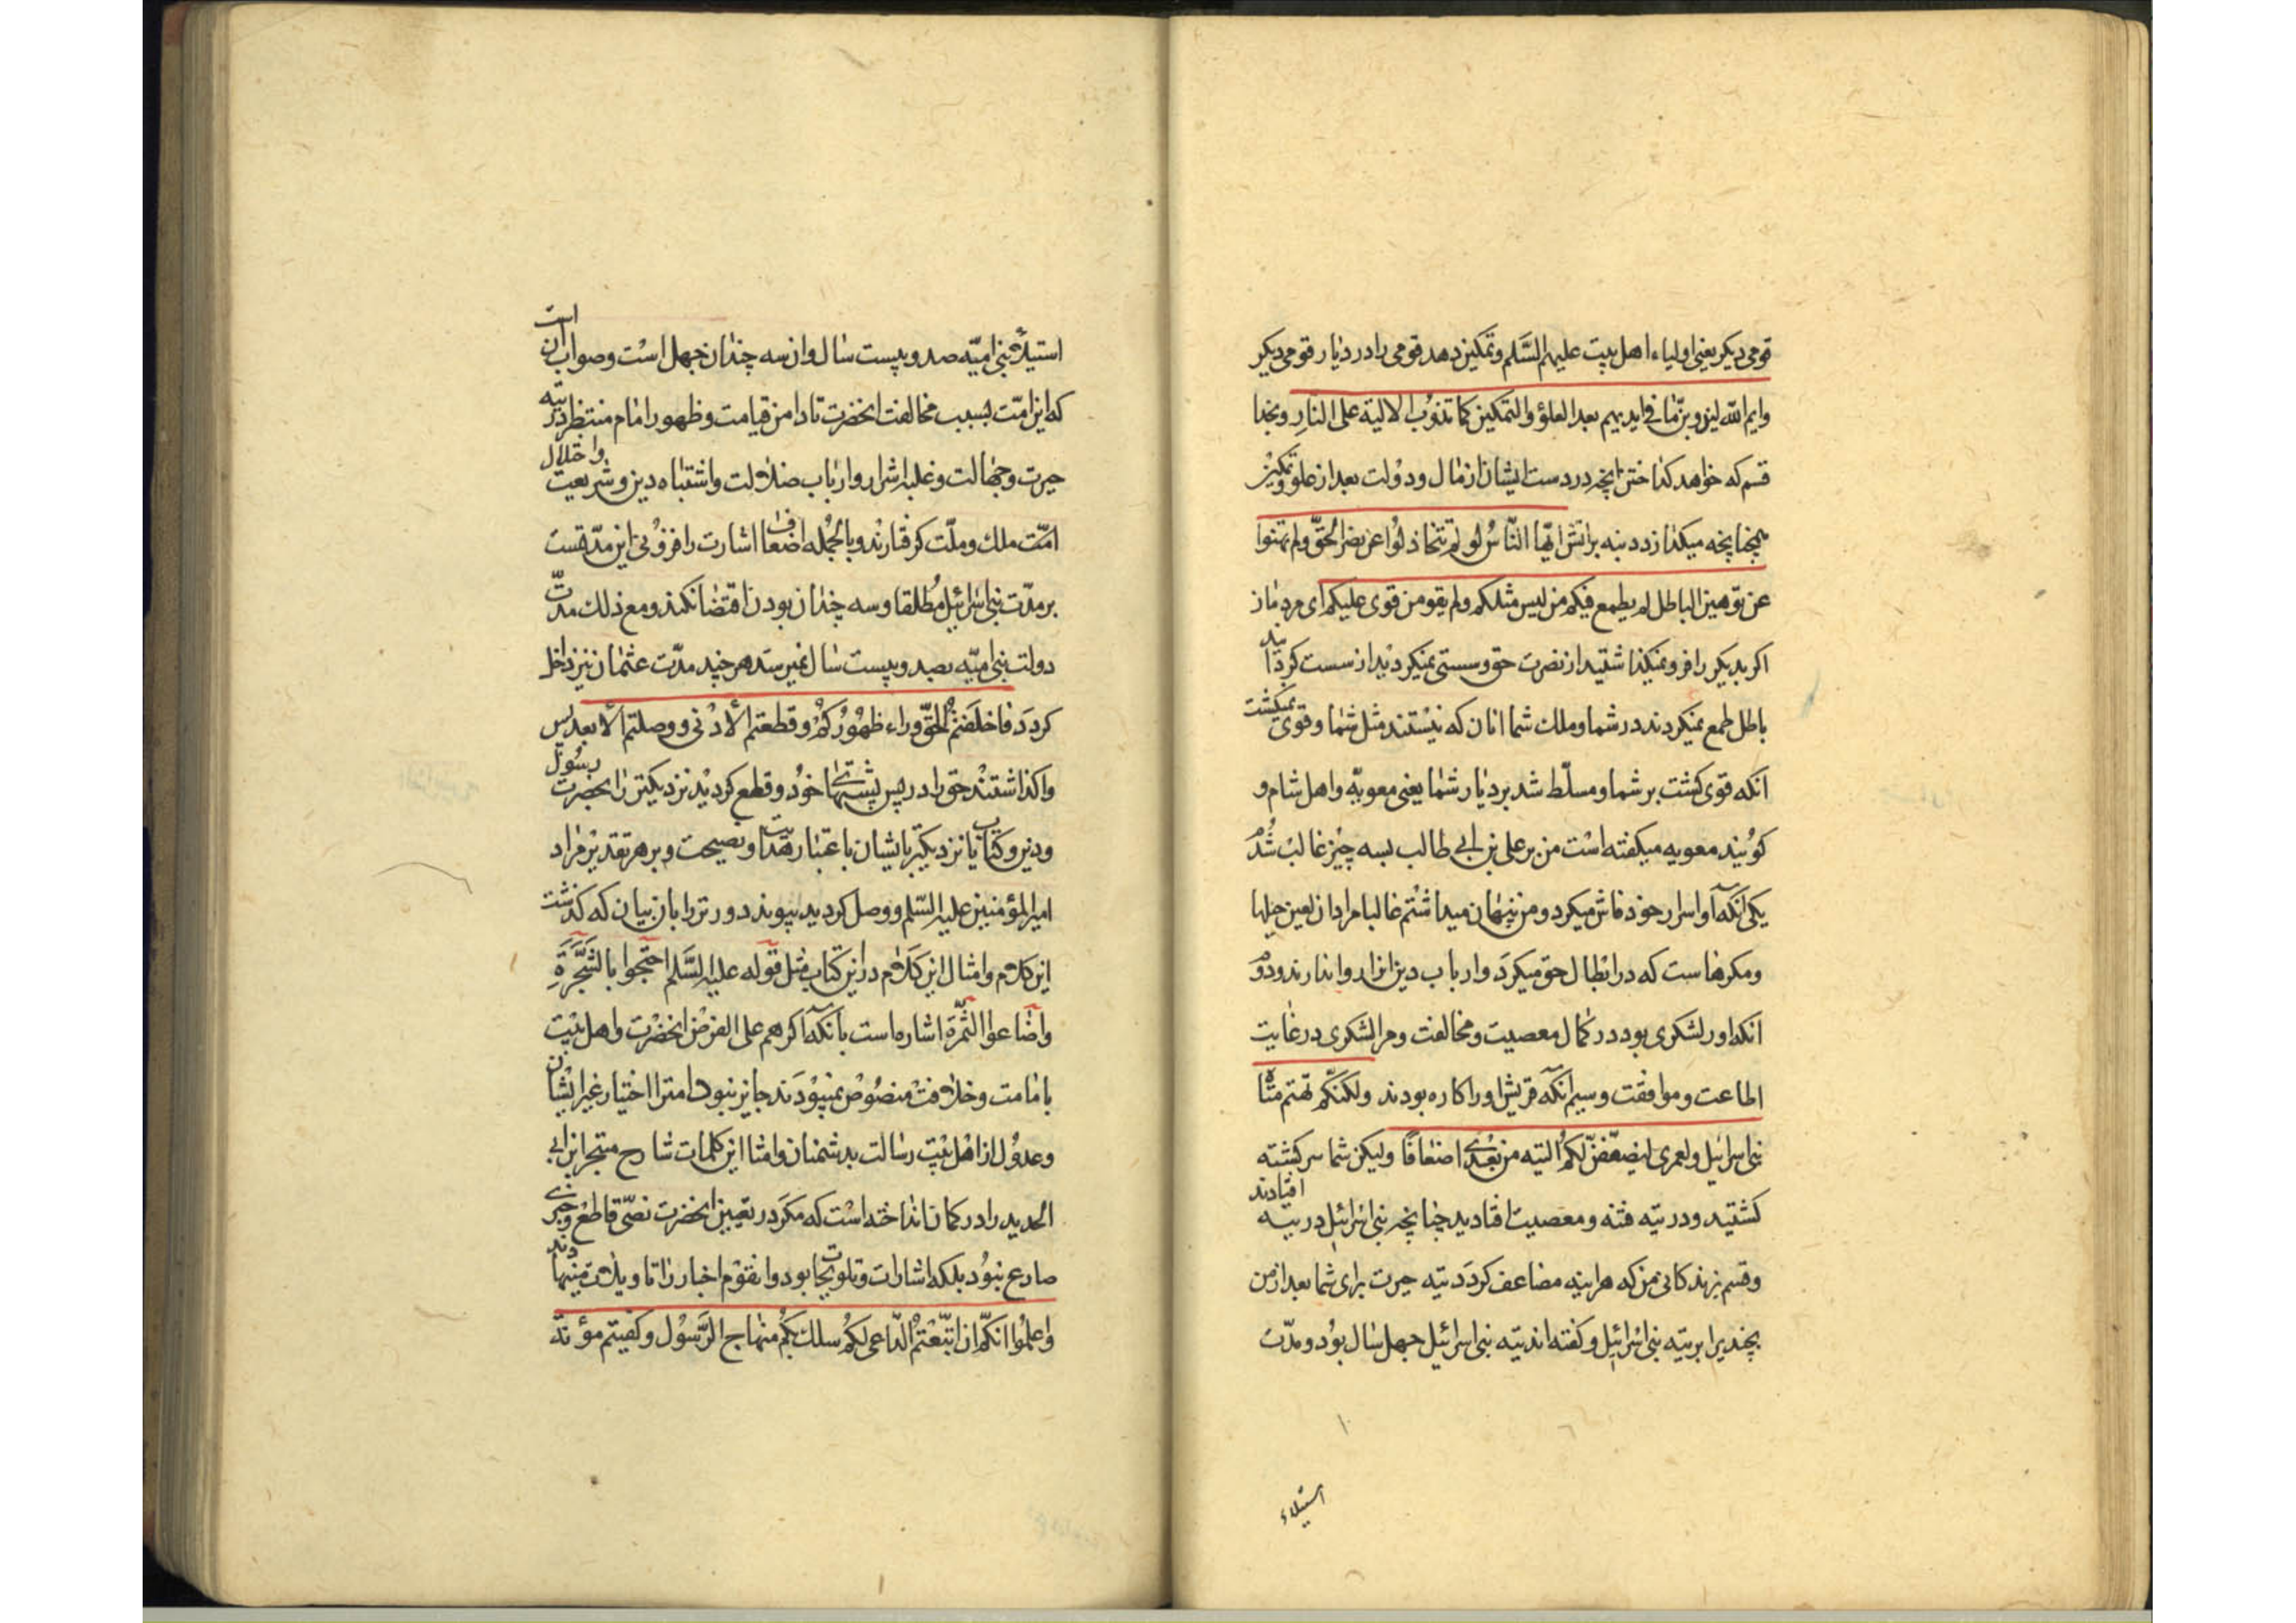 قومی دیکر یعنی اولیاء اهل بیت علیهم السّلم و تمکین دهد قومی را در دیار قومی دیکر
وایم الله لیذوبنّ ما فی ایدیهم بعد العلوّ والتمکین کما تذوب الالیة علی النار و بخدا
قسم که خواهد کداختن آنچه در دست ایشان از مال و دولت بعد از علو و تمکین
همچنانچه میکدازد دنبه بر آتش ایّها النّاس لو لم تتخاذلوا عن نصر الحقّ ولم تهنوا
عن توهین الباطل لم یطمع فیکم من لیس مثلکم ولم یقو من قوی علیکم ای مردمان
اکر یکدیکر را فرو نمیکذاشتید از نصرت حق و سستی نمیکردید از سست کردانید
باطل طمع نمیکردند در شما و ملک شما آنان که نیستند مثل شما و قوی نمیکشت
آنکه قوی کشت بر شما و مسلّط شد بر دیار شما یعنی معویه و اهل شام و
کویند معویه میکفته است من بر علی بن ابی طالب بسه چیز غالب شدم
یکی آنکه او اسرار خود فاش میکرد و من پنهان میداشتم غالبا مراد آن لعین حیلها
و مکرهاست که در ابطال حق میکرد و ارباب دین آن را روا ندارند و دوم
آنکه او را لشکری بود در کمال معصیت و مخالفت و مرا لشکری در غایت
اطاعت و موافقت و سیم آنکه قریش او را کاره بودند ولکنّکم تهتم متاه
بنی اسرائیل ولعمری لیضعّفنّ لکم التیه من بعدی اضعافا ولیکن شما سرکشته
کشتید و در تیه فتنه و معصیت افتادید چنانچه بنی اسرائیل در تیه افتادند
و قسم بزندکانی من که هراینه مضاعف کردد تیه حیرت برای شما بعد از من
بچندین برابر تیه بنی اسرائیل و کفته اند تیه بنی اسرائیل چهل سال بود و مدّت
استیلاء
استیلاء بنی امیّه صد و بیست سال و آن سه چندان چهل است و صواب آن است
که این امّت بسبب مخالفت آنحضرت تا دامن قیامت و ظهور امام منتظر در تیه
حیرت و جهالت و غلبه اشرار و ارباب ضلالت و اشتباه دین و شریعت و اختلال
امّت ملک و ملّت کرفتارند و بالجمله اضعافا اشارت را فزونی این مدّتست
بر مدّت بنی اسرائیل مطلقا و سه چندان بودن اقتضا نکند و مع ذلک مدّت
دولت بنی امیّه بصد و بیست سال نمیرسد هرچند مدّت عثمان نیز داخل
کردد فاخلفتم الحقّ وراء ظهورکم وقطعتم الأدنی ووصلتم الأبعد پس
واکذاشتند حق را در پس پشتهای خود و قطع کردید نزدیکتر را بحضرت رسول
و دین و کتاب یا نزدیکتر بایشان باعتبار هدایت و نصیحت و بر هر تقدیر مراد
امیرالمؤمنین علیه السّلم و وصل کردید پیوند دورتر را بآن بیان که کذشت
این کلام و امثال این کلام در این کتاب مثل قوله علیه السّلم احتجوا بالشّجرة
واضاعوا الثّمرة اشاره است بآنکه اکر هم علی الفرض آنحضرت و اهل بیت
بامامت و خلافت منصوص نمیبودند جایز نبود امت را اختیار غیر ایشان
و عدول از اهل بیت رسالت بدشمنان و امثال این کلمات شارح متبحر ابن ابی
الحدید را در کمان انداخته است که مکر در تعیین آنحضرت نصّی قاطع و خبری
صادع نبود بلکه اشارات و تلویحات بود و آنقوم اخبار را تاویلات مینهادند
واعلموا انّکم ان اتّبعتم الدّاعی لکم سلک بکم منهاج الرّسول وکفیتم مؤنة